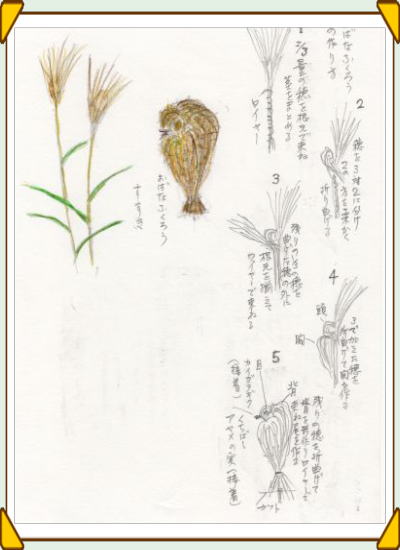 ばなふくろう
の作り方
1
1/3量の穂を根元で束ね
茎をまとめる
ワイヤー
2
穂を3対2に分け
2の方を
折り曲げる
3
残りの
曲げた穂の外に
根元を揃えて
ワイヤーで束ねる
4
3で加えた穂を
折曲げて胸を作る
頭
胸
5
残りの穂を折曲げて
背を形作りワイヤーで
束ね尾を作る
背
目
カイガラギク
(接着)
くちばし
アヤメの実(接着)
カット
おばなふくろう
すすき